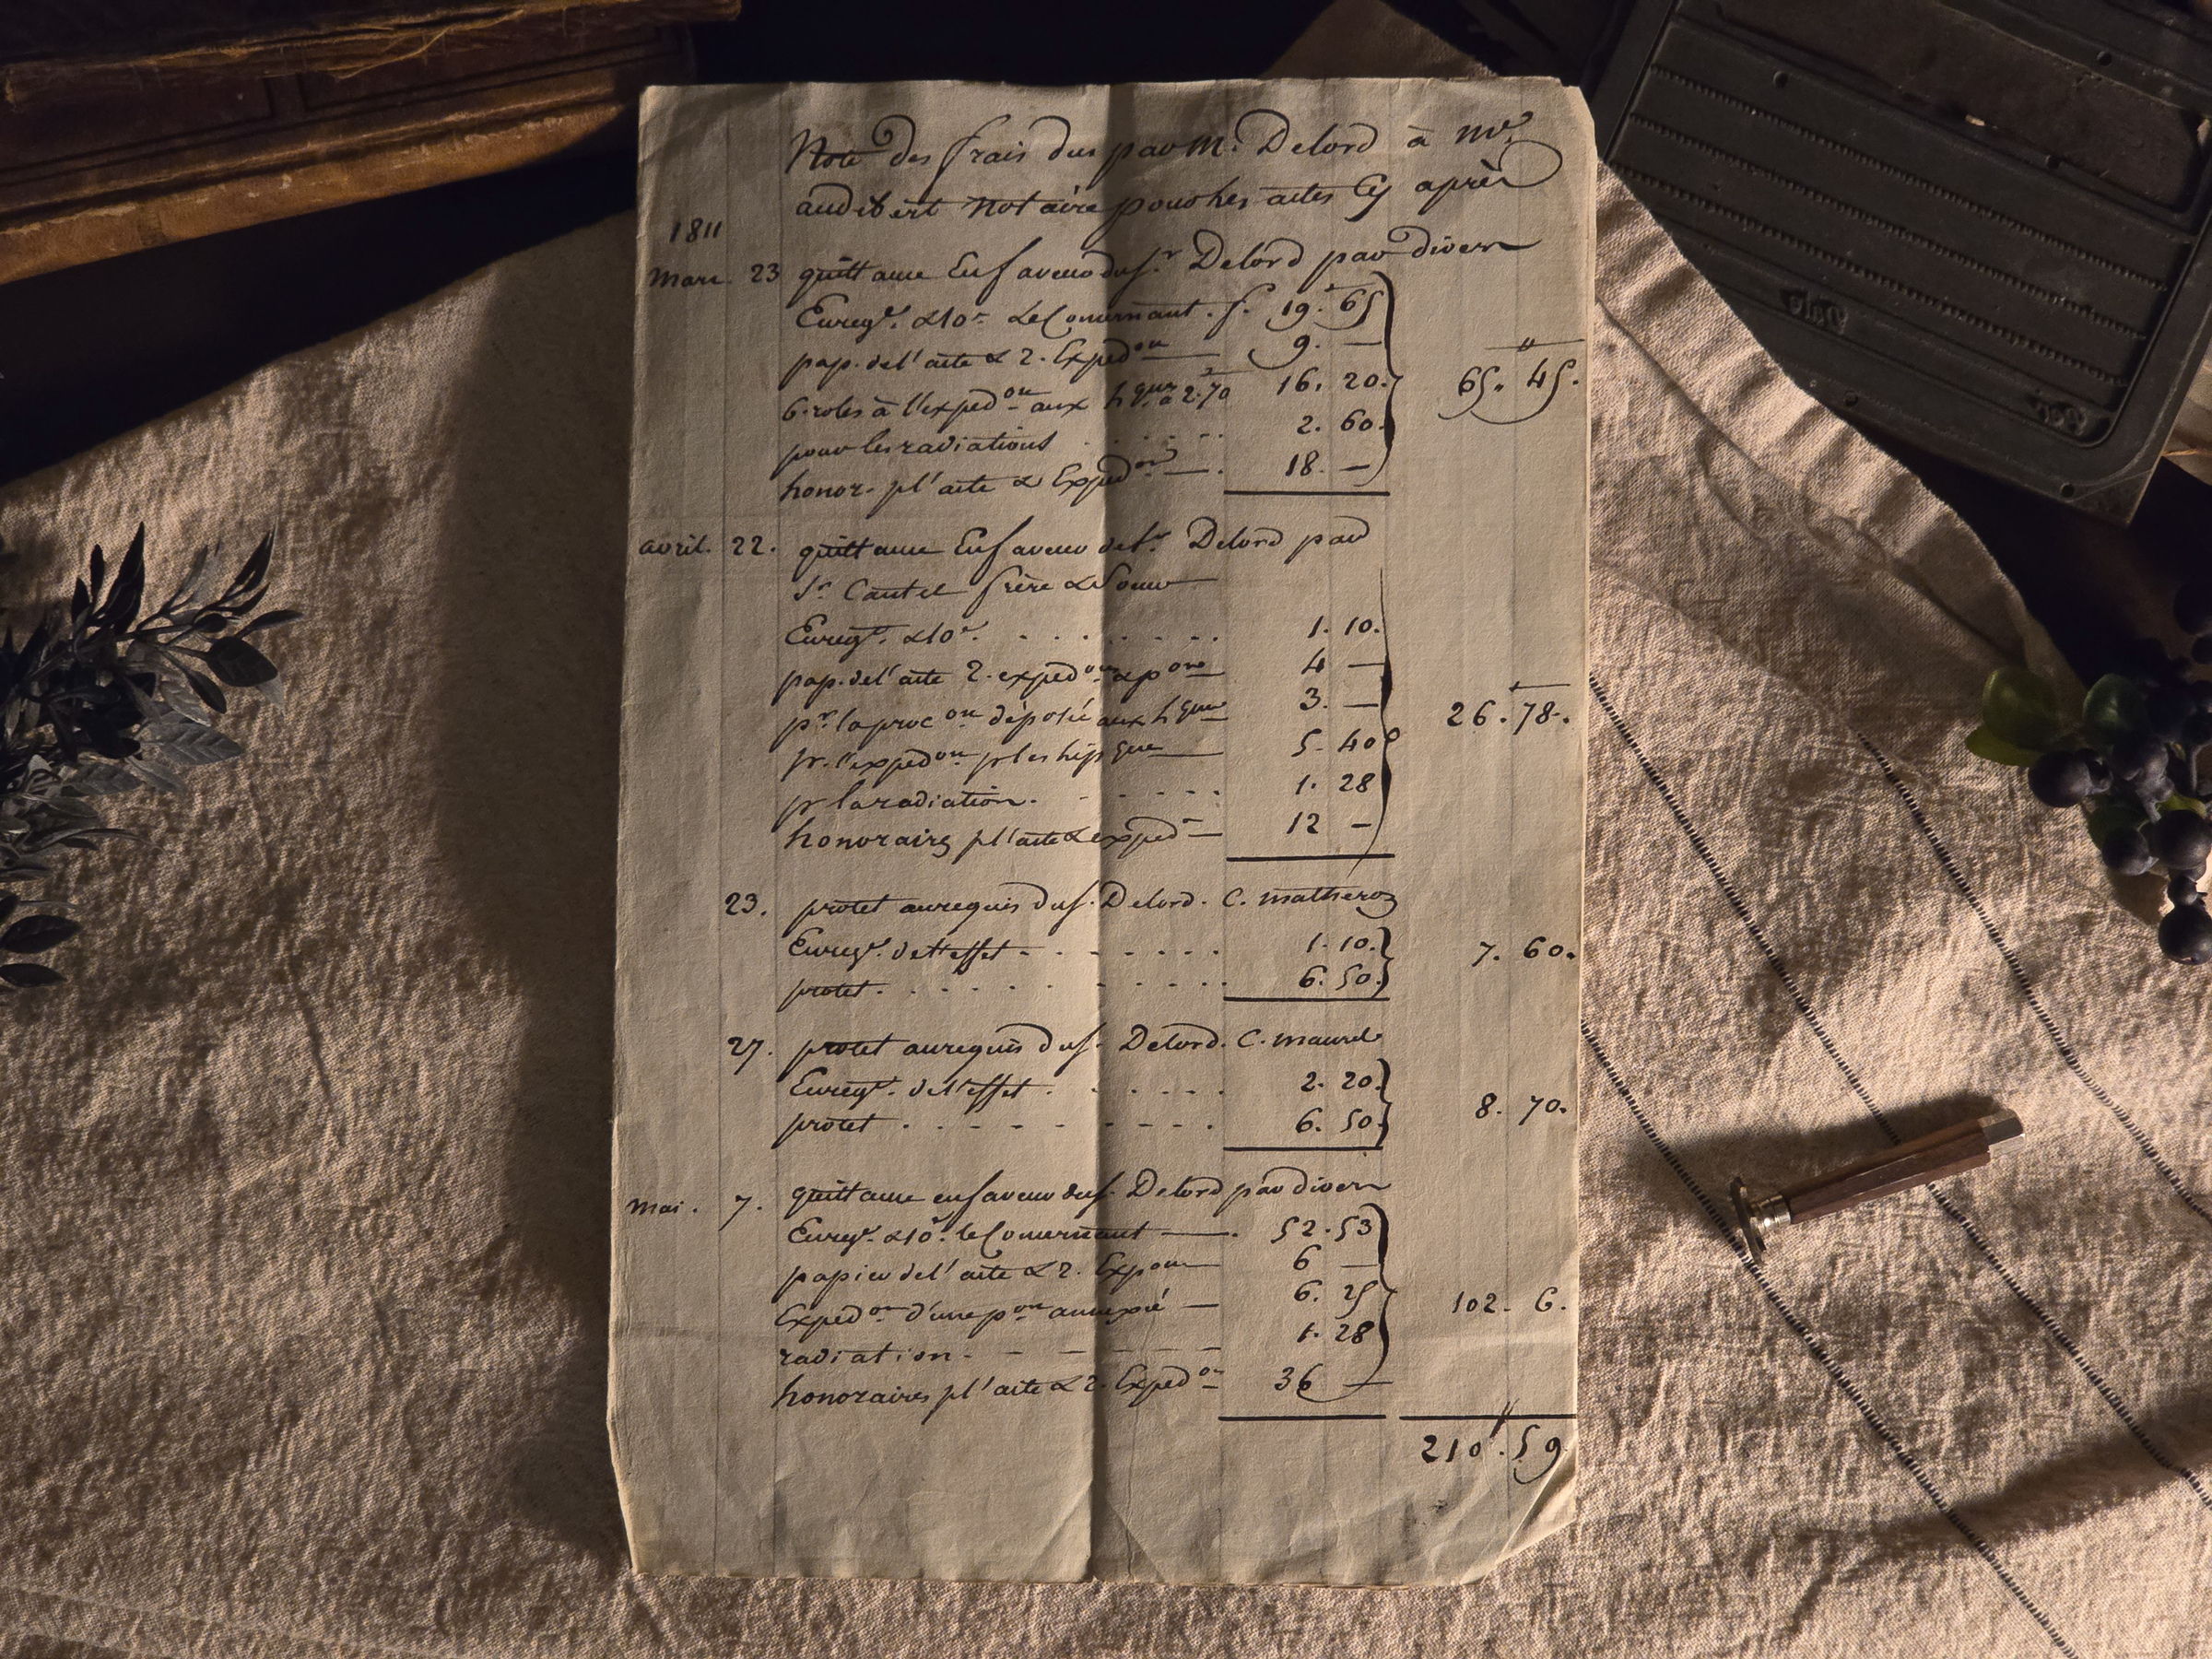 Note des frais dus par M. Delord à Me
audibert Notaire pour les actes Cy après
1811
Mars. 23 quittance En faveur du Sr. Delord par divers
Enregt. & 10e. Le Concernant. f. 19. 65
pap. de l'acte & 2. Expedon 9. —
6. roles à l'expedon aux hques à 2.70 16. 20.
pour les radiations 2. 60.
honor. pr l'acte & Expedon 18. —
65. 45.
avril. 22. quittance En faveur de Sr. Delord par
Sr. Cautel frère & Soeur
Enregt. & 10e. 1. 10.
pap. de l'acte 2. expedon & pon 4 —
pr. la procon déposée aux hques 3. —
pr. l'expedon pr les hipques 5. 40
pr la radiation. 1. 28
honoraires pr l'acte & exped 12 —
26. 78.
23. protet au requis du S. Delord. C. matheroz
Enregt. de l'effet 1. 10.
protet. 6. 50.
7. 60.
27. protet au requis du S. Delord. C. maurel
Enregt. de l'effet. 2. 20.
protet. 6. 50.
8. 70.
Mai. 7. quittance en faveur du S. Delord par divers
Enregt. & 10e. le Concernant 52. 53
papier de l'acte & 2. Expon 6 —
Expedon d'une pon annexée 6. 25
radiation. 1. 28
honoraires pr l'acte & 2. Expedon 36 —
102. 6.
210. 59